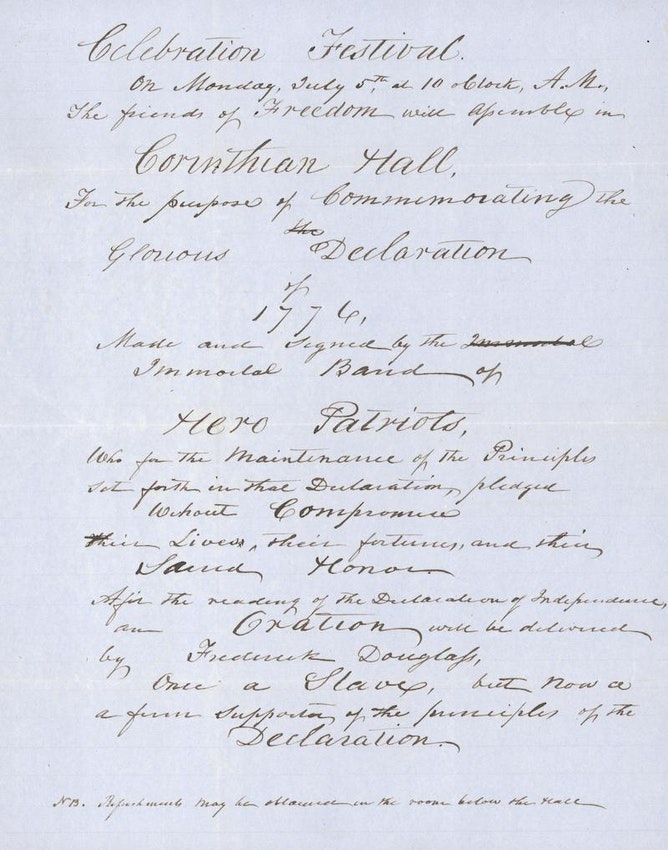 Celebration Festival.
On Monday, July 5th, at 10 oClock, A.M.,
The friends of Freedom will assemble in
Corinthian Hall,
For the purpose of Commemorating the
the
Glorious Declaration
of
1776,
Made and signed by the Immortal
Immortal Band of
Hero Patriots,
Who for the Maintenance of the Principles
set forth in that Declaration, pledged
Without Compromise
their Lives, their fortunes, and their
Sacred Honor
After the reading of the Declaration of Independence,
an Oration will be delivered
by Frederick Douglass,
Once a Slave, but now a
a firm supporter of the principles of the
Declaration.
NB. Refreshments may be obtained in the room below the Hall